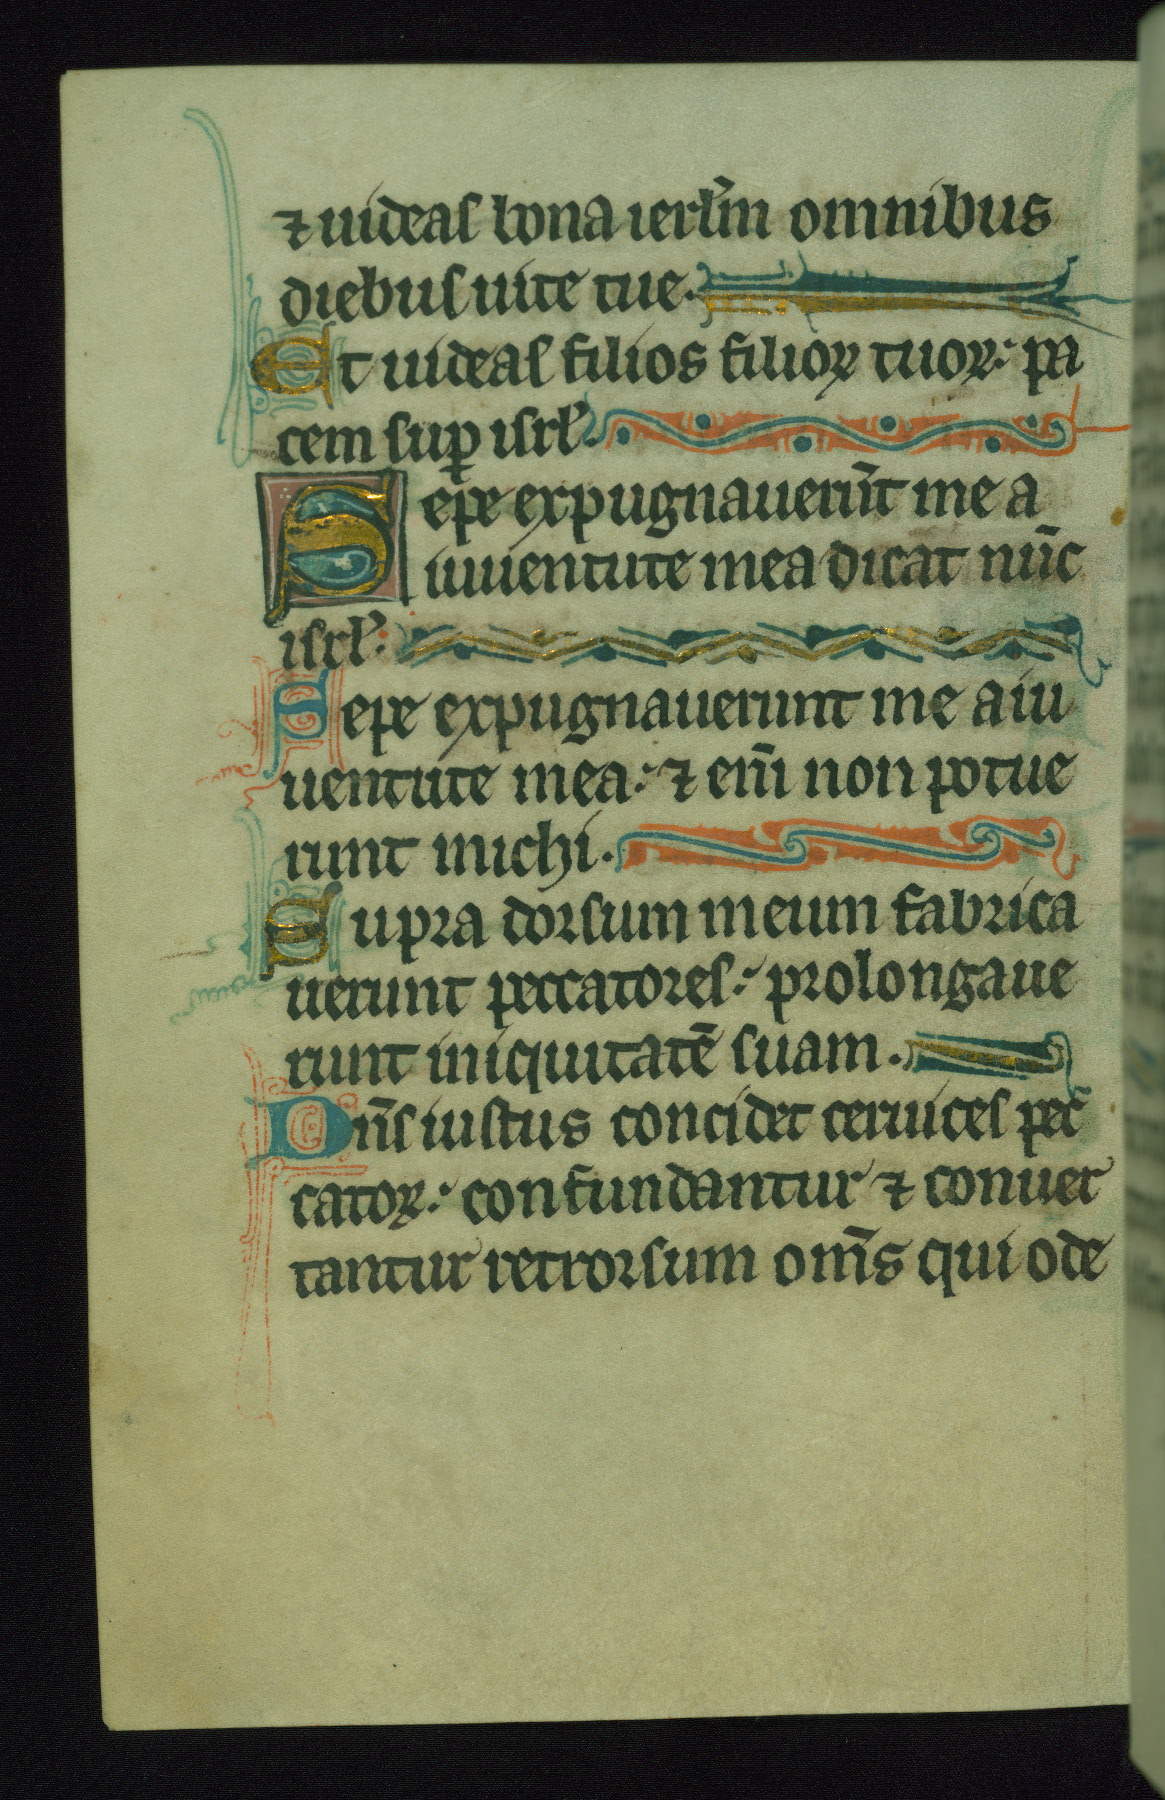 ⁊ uideas bona ierl̄m omnibus
diebus uite tue.
Et uideas filios filioꝝ tuoꝝ: pa
cem suꝑ isrl̄.
Sepe expugnauerūt me a
iuuentute mea dicat nūc
isrl̄:
Sepe expugnauerunt me a iu
uentute mea: ⁊ eni̅ non potue
runt michi.
Supra dorsum meum fabrica
uerunt peccatores: prolongaue
runt iniquitatē suam.
Dn̄s iustus concidet ceruices pec
catoꝝ: confundantur ⁊ conuer
tantur retrorsum om̄s qui ode